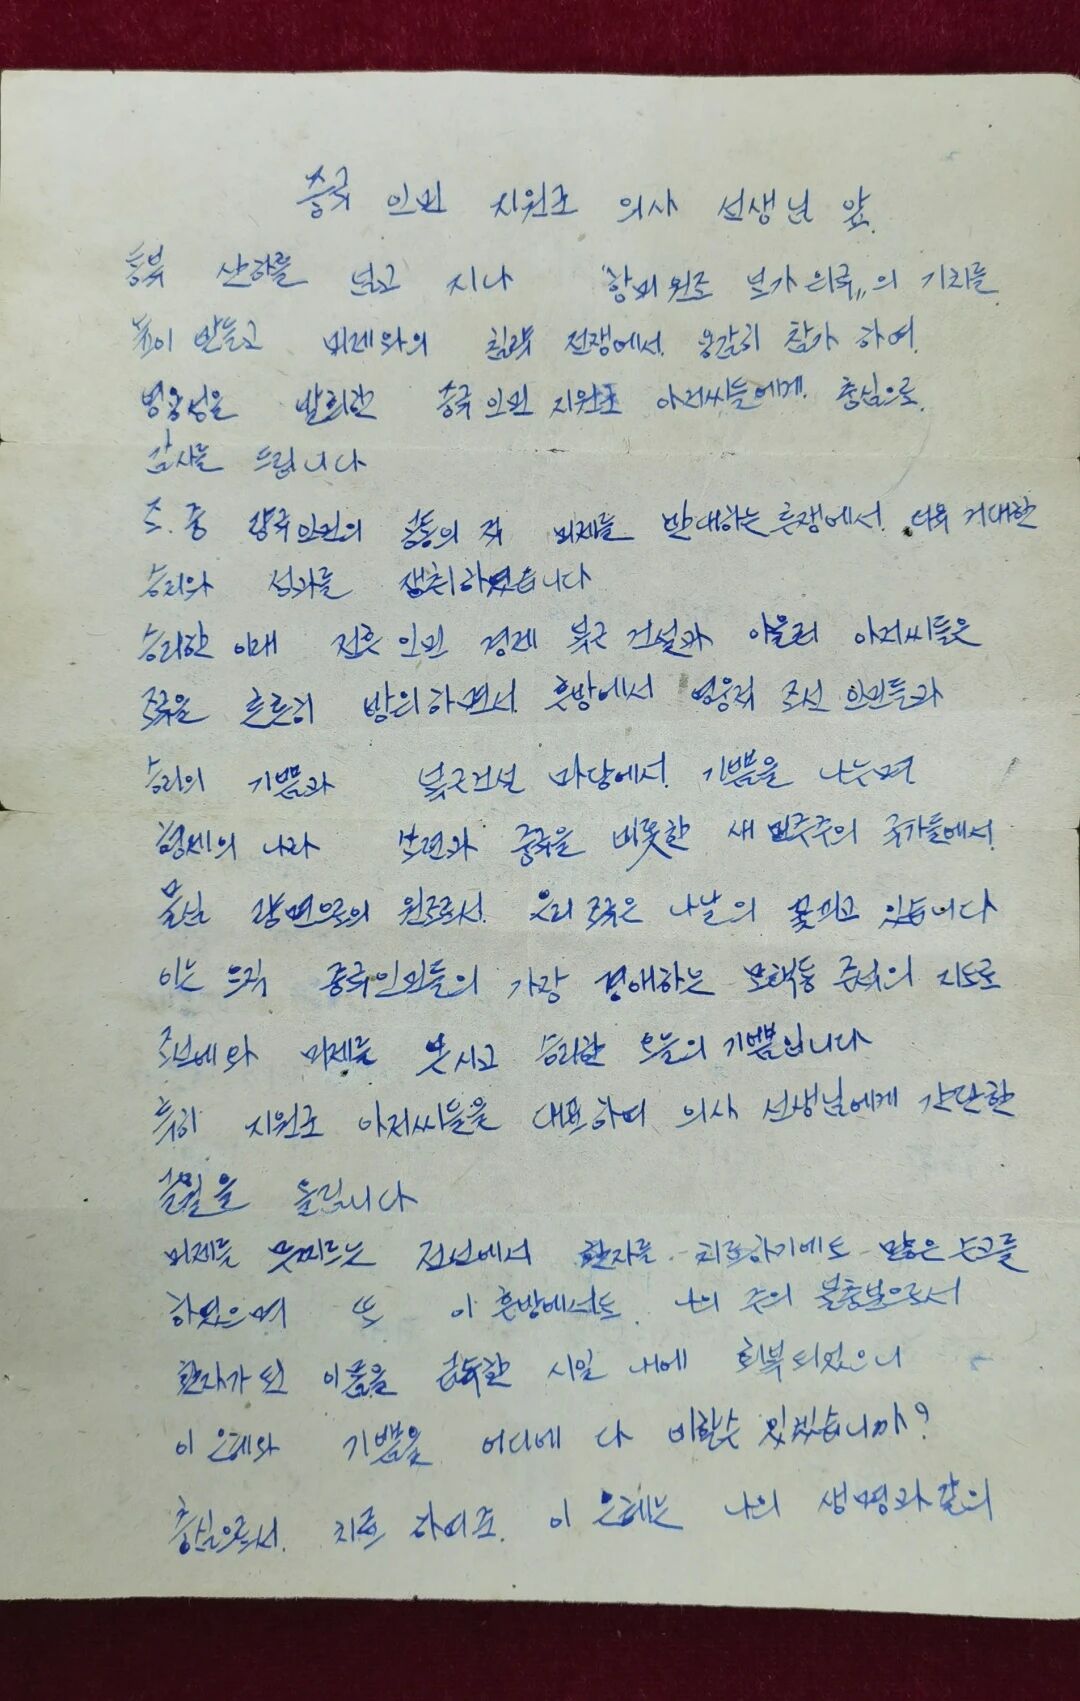 중국 인민 지원군 의사 선생님 앞.
동북 산하를 넘고 지나 "항미 원조 보가 위국"의 기치를
높이 받들고 미제와의 침략 전쟁에서 용감히 참가 하여.
영웅성을 발휘한 중국 인민 지원군 아저씨들에게 충심으로
감사를 드립니다
조.중 량국인민의 공동의 적 미제를 반대하는 투쟁에서 더욱 거대한
승리와 성과를 쟁취하였습니다
승리한 이래 전후 인민 경제 복구 건설과 아울러 아저씨들은
조국을 튼튼히 방위하면서 후방에서 영웅적 조선 인민들과
승리의 기쁨과 복구건설 마당에서 기쁨을 나누며
형제의 나라 쏘련과 중국을 비롯한 새 민주주의 국가들에서
물심 량면으로의 원조로서 우리 조국은 나날의 꽃피고 있습니다
이는 오직 중국인민들의 가장 경애하는 모택동 주석의 지도로
조선에와 미제를 승리한 오늘의 기쁨입니다
특히 지원군 아저씨들을 대표하여 의사 선생님에게 간단한
을 올립니다
미제를 무찌르는 전선에서 환자를 치료하기에도 많은 수고를
하였으며 또 이 후방에서도 나의 주의 불충분으로서
환자가 된 이몸을 시일 내에 회복되었으니
이 은혜와 기쁨을 어디에 다 비할수 있겠습니까?
충심으로서. 치료 하여준 이 은혜는 나의 생명과 같의